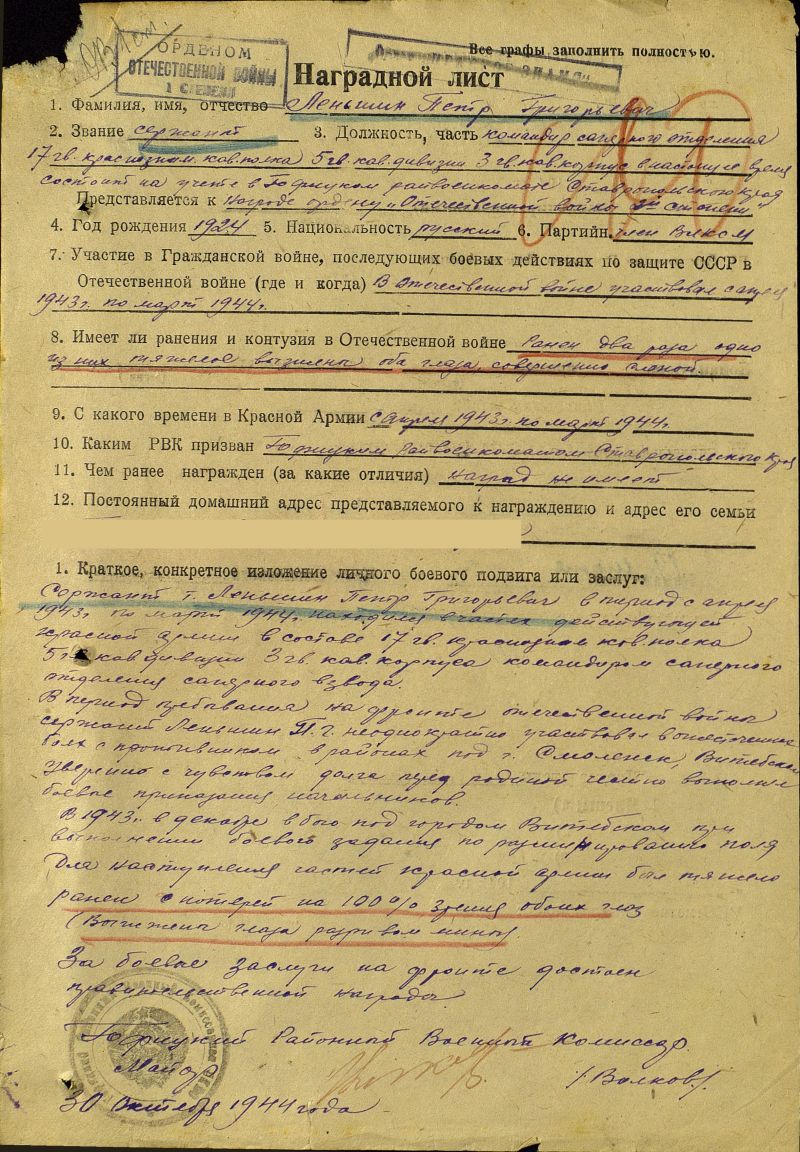 ОРДЕНОМ
ОТЕЧЕСТВЕННОЙ ВОЙНЫ
1 СТЕПЕНИ
Все графы заполнить полностью.
Наградной лист
1. Фамилия, имя, отчество Леньшин Петр Григорьевич
2. Звание сержант 3. Должность, часть командир саперного отделения
17 гв. краснознам. кав. полка 5 гв. кав. дивизии 3 гв. кав. корпус в настоящее время
состоит на учете в райвоенкомате Ставропольского края
Представляется к награде ордену „Отечественной войны степени"
4. Год рождения 1924 5. Национальность русский 6. Партийн. член Влксм
7. Участие в Гражданской войне, последующих боевых действиях по защите СССР в
Отечественной войне (где и когда) В Отечественной войне участвовал с апреля
1943г. по март 1944г.
8. Имеет ли ранения и контузия в Отечественной войне Ранен два раза одно
из них тяжелое выжжены оба глаза, совершенно слепой.
9. С какого времени в Красной Армии с апреля 1943г. по март 1944г.
10. Каким РВК призван райвоенкоматом Ставропольского края
11. Чем ранее награжден (за какие отличия) наград не имеет
12. Постоянный домашний адрес представляемого к награждению и адрес его семьи
1. Краткое, конкретное изложение личного боевого подвига или заслуг:
Сержант т. Леньшин Петр Григорьевич в период с апреля
1943г. по март 1944г. находился в частях действующей
красной армии в составе 17 гв. краснознам кав. полка
5 гв. кав. дивизии 3 гв. кав. корпуса командиром саперного
отделения саперного взвода.
В период пребывания на фронте отечественной войны
сержант Леньшин П. Г. неоднократно участвовал в ожесточенных
боях с противником в районах под г. Смоленск, Витебском
уверенно с чувством долга перед родиной честно выполнял
боевые приказания начальников.
В 1943г. в декабре в бою под городом Витебском при
выполнении боевого задания по разминированию поля
для наступления частей красной армии был тяжело
ранен с потерей на 100% зрения обоих глаз
(Выжжены глаза разрывом мины)
За боевые заслуги на фронте достоен
правительственной награды.
Районный Военный Комиссар
Майор /Волков/.
30 Октября 1944 года